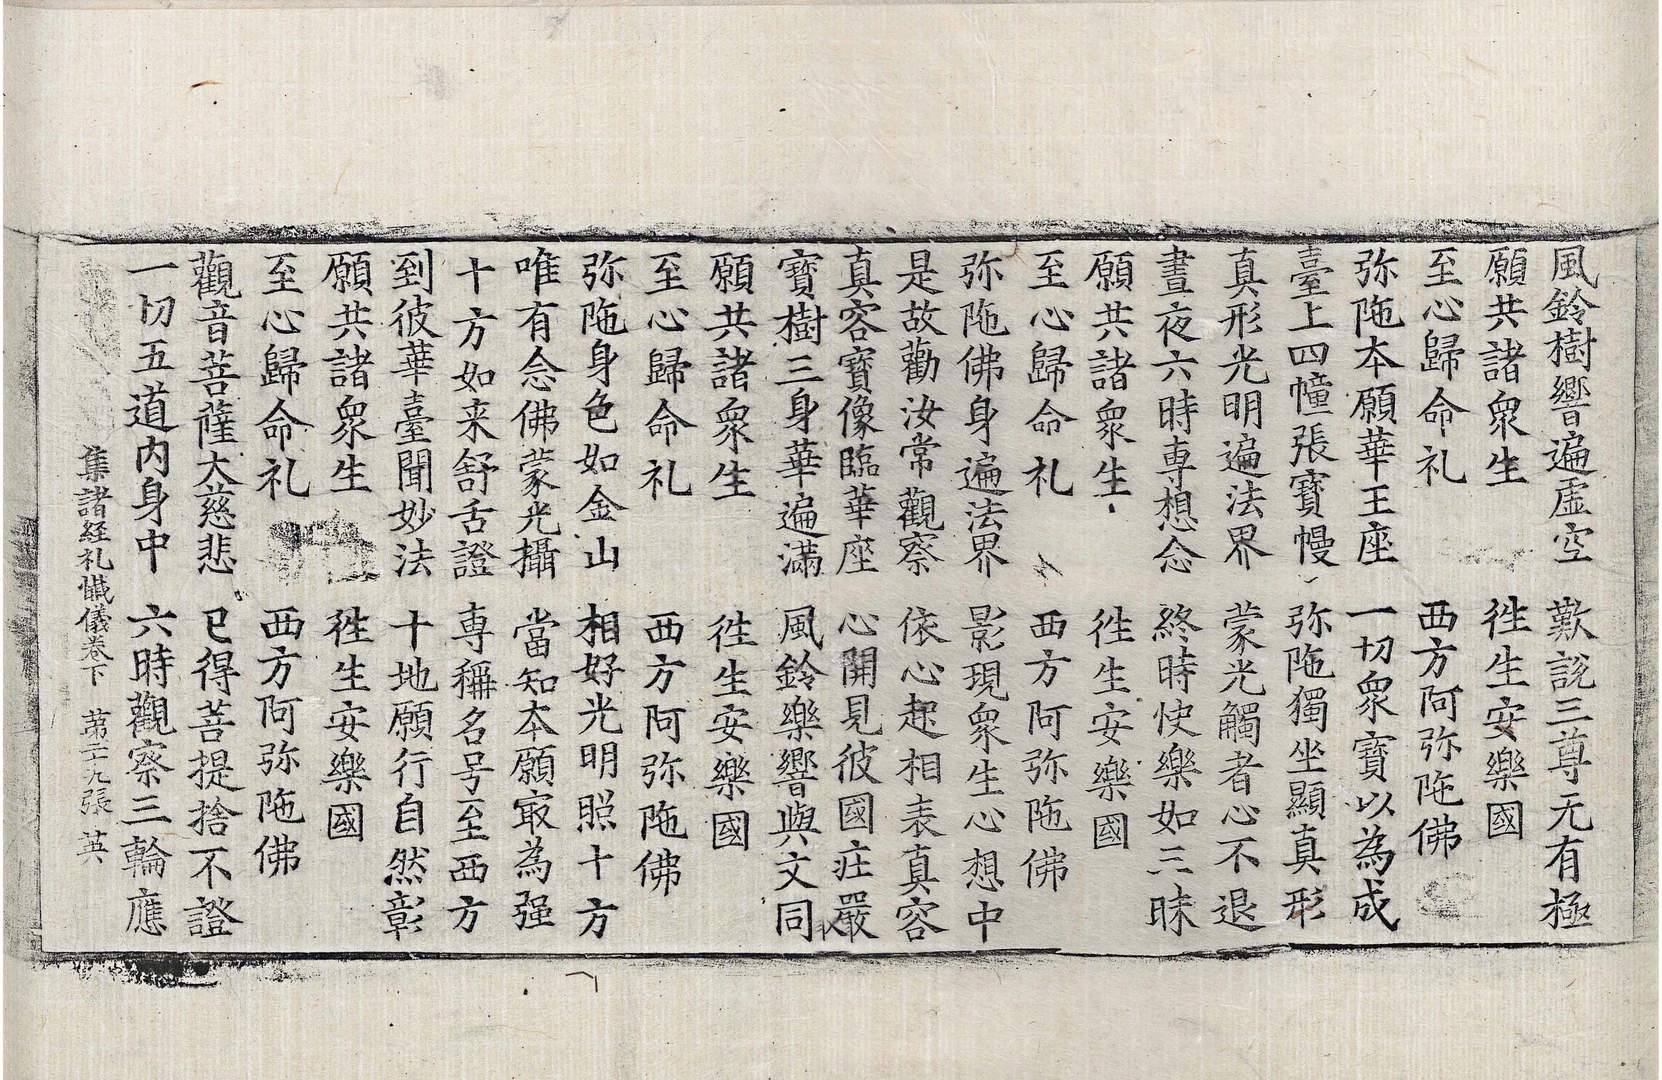 風鈴樹響遍虛空　歎說三尊无有極
願共諸衆生　徃生安樂國
至心歸命礼　西方阿弥陁佛
弥陁本願華王座　一切衆寶以為成
臺上四幢張寶幔　弥陁獨坐顯真形
真形光明遍法界　蒙光觸者心不退
晝夜六時専想念　終時快樂如三昧
願共諸衆生　徃生安樂國
至心歸命礼　西方阿弥陁佛
弥陁佛身遍法界　影現衆生心想中
是故勸汝常觀察　依心起相表真容
真容寶像臨華座　心開見彼國庄嚴
寶樹三身華遍滿　風鈴樂響與文同
願共諸衆生　徃生安樂國
至心歸命礼　西方阿弥陁佛
弥陁身色如金山　相好光明照十方
唯有念佛蒙光攝　當知本願㝡為强
十方如来舒舌證　専稱名号至西方
到彼華臺聞妙法　十地願行自然彰
願共諸衆生　徃生安樂國
至心歸命礼　西方阿弥陁佛
觀音菩薩大慈悲　已得菩提捨不證
一切五道內身中　六時觀察三輪應
集諸経礼懴儀卷下　苐二十九張　英